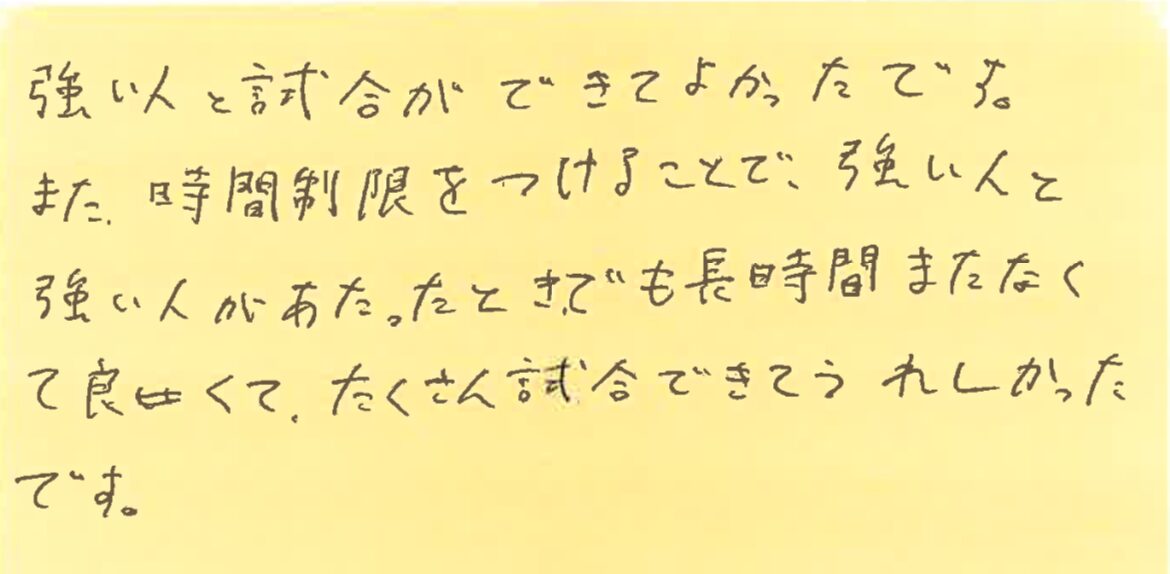 強い人と試合ができてよかったです。
また、時間制限をつけることで、強い人と
強い人があたったときでも長時間またなく
て良くて、たくさん試合できてうれしかった
です。